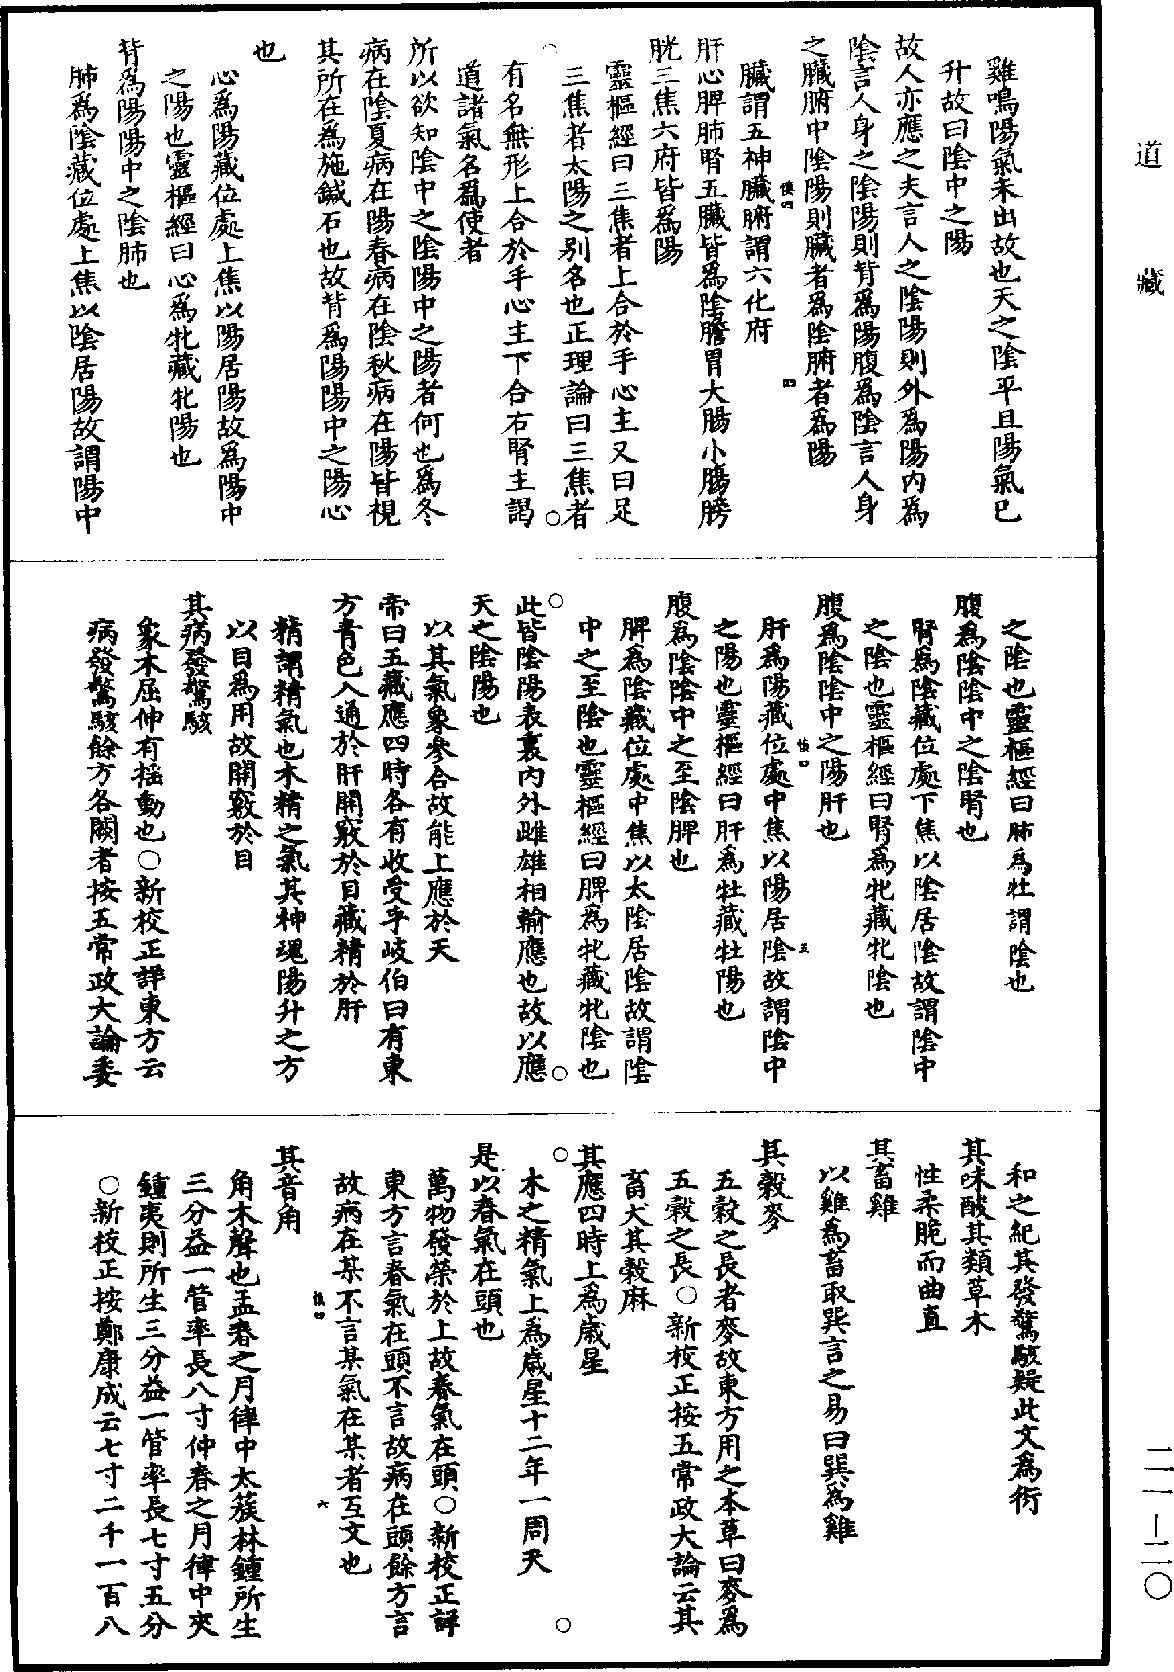 道藏
雞鳴陽氣未出故也天之陰平旦陽氣已
升故曰陰中之陽
故人亦應之夫言人之陰陽則外為陽內為
陰言人身之陰陽則背為陽腹為陰言人身
之臟腑中陰陽則臟者為陰腑者為陽
臟謂五神臟腑謂六化府
肝心脾肺腎五臟皆為陰膽胃大腸小腸膀
胱三焦六府皆為陽
靈樞經曰三焦者上合於手心主又曰足
三焦者太陽之別名也正理論曰三焦者
有名無形上合於手心主下合右腎主謁
道諸氣名為使者
所以欲知陰中之陰陽中之陽者何也為冬
病在陰夏病在陽春病在陰秋病在陽皆視
其所在為施鍼石也故背為陽陽中之陽心
也
心為陽藏位處上焦以陽居陽故為陽中
之陽也靈樞經曰心為牝藏牝陽也
背為陽陽中之陰肺也
肺為陰藏位處上焦以陰居陽故謂陽中
之陰也靈樞經曰肺為牡謂陰也
腹為陰陰中之陰腎也
腎為陰藏位處下焦以陰居陰故謂陰中
之陰也靈樞經曰腎為牝藏牝陰也
腹為陰陰中之陽肝也
肝為陽藏位處中焦以陽居陰故謂陰中
之陽也靈樞經曰肝為牡藏牡陽也
腹為陰陰中之至陰脾也
脾為陰藏位處中焦以太陰居陰故謂陰
中之至陰也靈樞經曰脾為牝藏牝陰也
此皆陰陽表裏內外雌雄相輸應也故以應
天之陰陽也
以其氣象參合故能上應於天
帝曰五藏應四時各有收受乎岐伯曰有東
方青色入通於肝開竅於目藏精於肝
精謂精氣也木精之氣其神魂陽升之方
以目為用故開竅於目
其病發驚駭
象木屈伸有搖動也○新校正詳東方云
病發驚駭餘方各闕者按五常政大論委
和之紀其發驚駭疑此文為衍
其味酸其類草木
性柔脆而曲直
其畜雞
以雞為畜取巽言之易曰巽為雞
其穀麥
五穀之長者麥故東方用之本草曰麥為
五穀之長○新校正按五常政大論云其
畜犬其穀麻
其應四時上為歲星
木之精氣上為歲星十二年一周天
是以春氣在頭也
萬物發榮於上故春氣在頭○新校正詳
東方言春氣在頭不言故病在頭餘方言
故病在某不言某氣在某者互文也
其音角
角木聲也孟春之月律中太蔟林鍾所生
三分益一管率長八寸仲春之月律中夾
鍾夷則所生三分益一管率長七寸五分
○新校正按鄭康成云七寸二千一百八
二一—二〇